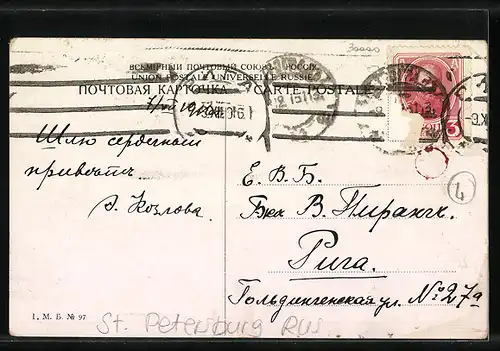 30000
ВСЕМІРНЫЙ ПОЧТОВЫЙ СОЮЗЪ. РОССІЯ.
UNION POSTALE UNIVERSELLE RUSSIE
ПОЧТОВАЯ КАРТОЧКА — CARTE POSTALE
3
Шлю сердечный
привѣтъ
Э. Козлова.
Е. В. Б.
В.
Рига.
Гольдингенская ул. № 27а
4
I. М. Б. № 97
St. Petersburg Rus.